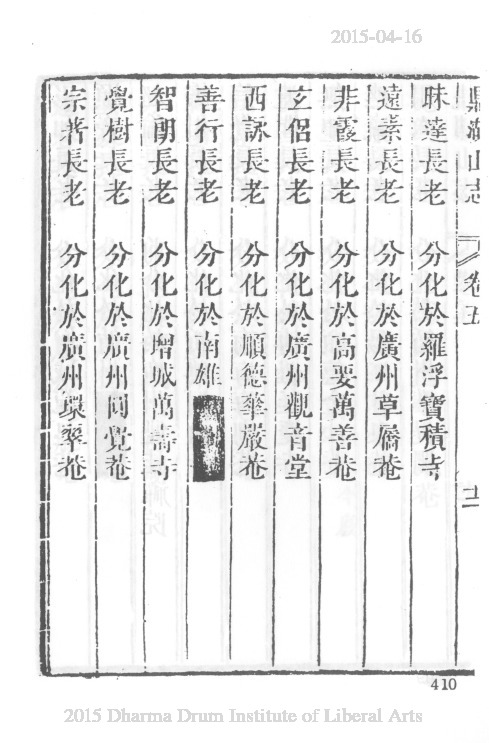 2015-04-16
鼎湖山志 卷五 十二
昧達長老 分化於羅浮寶積寺
遠素長老 分化於廣州草屩菴
非霞長老 分化於高要萬善菴
玄侶長老 分化於廣州觀音堂
西詠長老 分化於順德華嚴菴
善行長老 分化於南雄
智朗長老 分化於增城萬壽寺
覺樹長老 分化於廣州圓覺菴
宗著長老 分化於廣州環翠菴
410
2015 Dharma Drum Institute of Liberal Arts